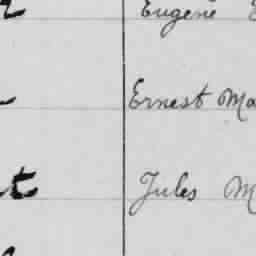 Eugene
Ernest Ma
t Jules M